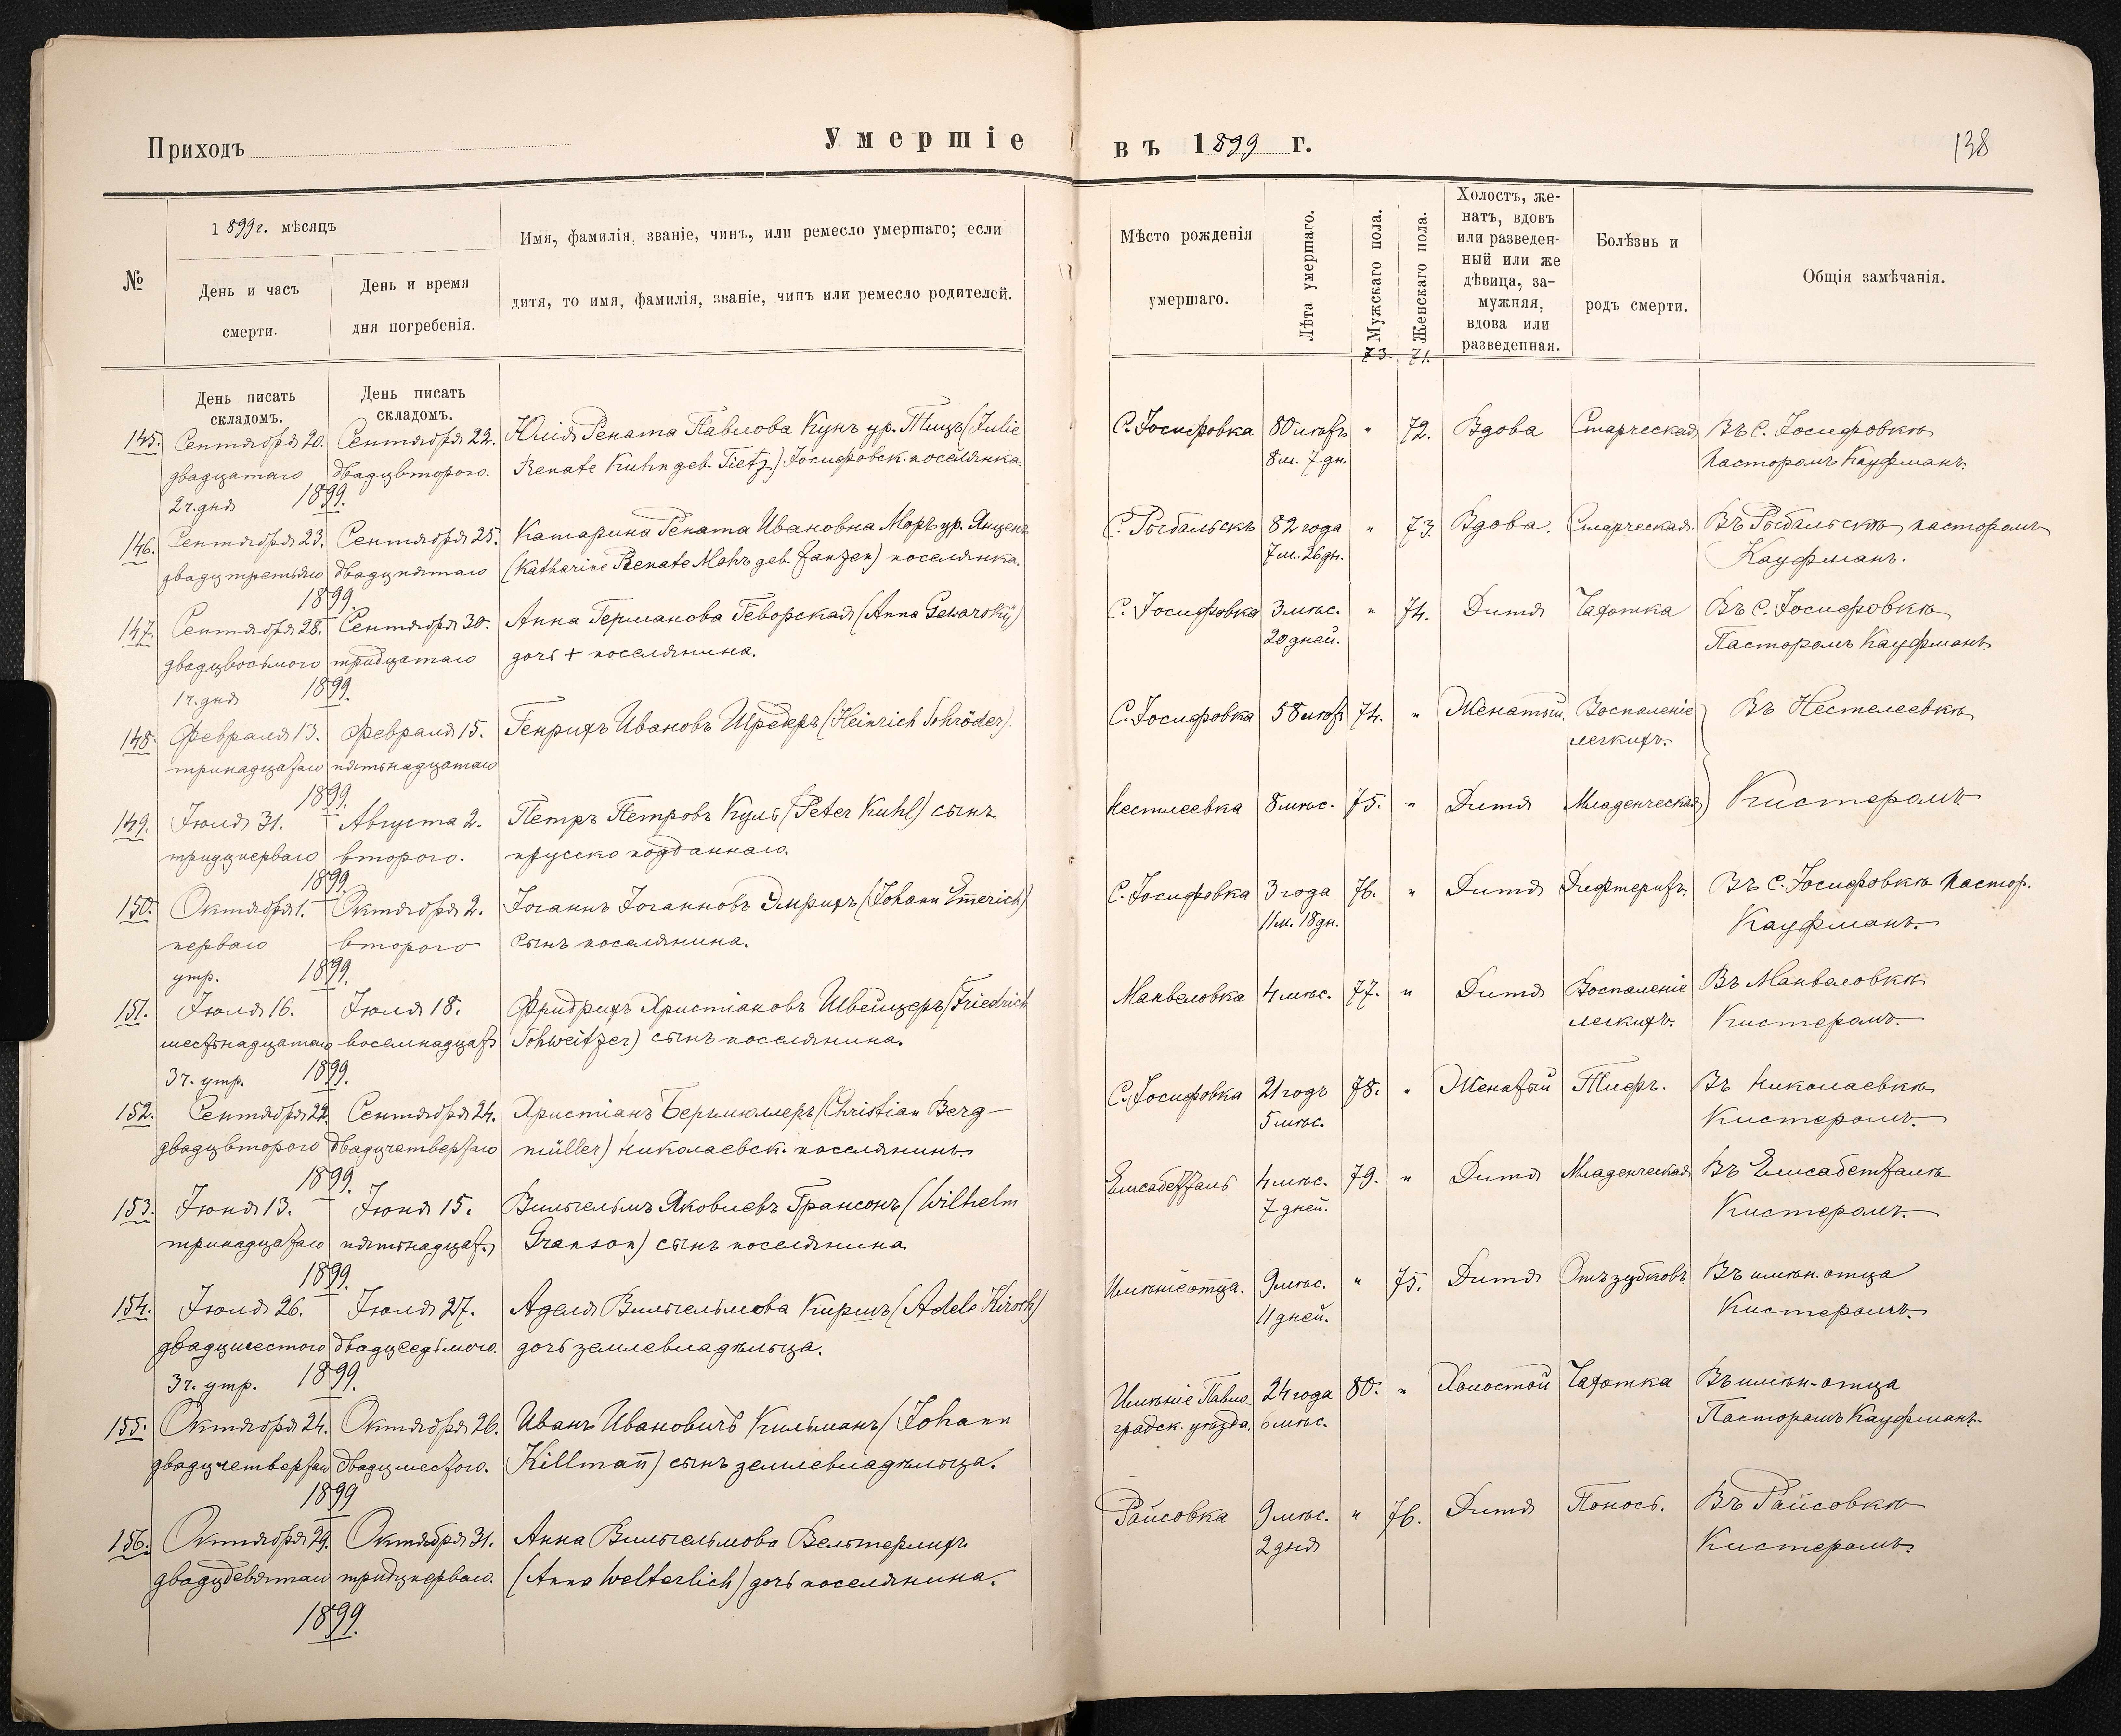 Приходъ
Умершіе
въ 1899 г.
138
№
1899 г. мѣсяцъ
День и часъ
смерти.
День и время
дня погребенія.
Имя, фамилія, званіе, чинъ, или ремесло умершаго; если
дитя, то имя, фамилія, званіе, чинъ или ремесло родителей.
Мѣсто рожденія
умершаго.
Лѣта умершаго.
Мужскаго пола.
Женскаго пола.
Холостъ, же-
натъ, вдовъ
или разведен-
ный или же
дѣвица, за-
мужняя,
вдова или
разведенная.
Болѣзнь и
родъ смерти.
Общія замѣчанія.
73. 71.
День писать
складомъ.
День писать
складомъ.
145. Сентября 20. Сентября 22. Юлія Рената Павлова Кунъ ур. Тицъ (Julie С. Іосифовка 80 лѣтъ " 72. Вдова Старческая Въ С. Іосифовкѣ
двадцатаго двадцвторого. Renate Kuhn geb. Tietz) Іосифовск. поселянка. 8 м. 7 дн. Пасторомъ Кауфманъ.
2 ч. дня 1899.
146. Сентября 23. Сентября 25. Катарина Рената Ивановна Моръ ур. Янценъ С. Рыбальскъ 82 года " 73. Вдова. Старческая. Въ Рыбальскѣ пасторомъ
двадцтретьяго двадцпятаго (Katharine Renate Mohr geb. Janzen) поселянка. 7 м. 26 дн. Кауфманъ.
1899.
147. Сентября 28. Сентября 30. Анна Германова Геворская (Anna Geworsky) С. Іосифовка 3 мѣс. " 74. Дитя Чахотка Въ С. Іосифовкѣ
двадцвосьмого тридцатаго дочь + поселянина. 20 дней. Пасторомъ Кауфманъ.
1 ч. дня 1899.
148. Февраля 13. Февраля 15. Генрихъ Ивановъ Шредеръ (Heinrich Schröder). С. Іосифовка 58 лѣтъ 74. " Женатый. Воспаленіе Въ Нестелеевкѣ
тринадцатаго пятьнадцатаго легкихъ.
1899.
149. Іюля 31. Августа 2. Петръ Петровъ Куль (Peter Kuhl) сынъ Нестлеевка 8 мѣс. 75. " Дитя Младенческая Кистеромъ
тридцперваго второго. прусско подданнаго.
1899.
150. Октября 1. Октября 2. Іоганнъ Іоганновъ Эмрихъ (Johann Emerich) С. Іосифовка 3 года 76. " Дитя Дифтеритъ. Въ С. Іосифовкѣ Пастор.
перваго второго сынъ поселянина. 11 м. 18 дн. Кауфманъ.
утр. 1899.
151. Іюля 16. Іюля 18. Фридрихъ Христіановъ Швейцеръ (Friedrich Манвеловка 4 мѣс. 77. " Дитя Воспаленіе Въ Манвеловкѣ
шестьнадцатаго восемнадцат Schweitzer) сынъ поселянина. легкихъ. Кистеромъ.
3 ч. утр. 1899.
152. Сентября 22. Сентября 24. Христіанъ Бергмюллеръ (Christian Berg- С. Іосифовка 21 годъ 78. " Женатый Тифъ. Въ Николаевкѣ
двадцвторого двадцчетвертаго müller) Николаевск. поселянинъ. 5 мѣс. Кистеромъ.
1899.
153. Іюня 13. Іюня 15. Вильгельмъ Яковлевъ Грансонъ (Wilhelm Елисабетталь 4 мѣс. 79. " Дитя Младенческая Въ Елисабетталѣ
тринадцатаго пятьнадцат. Granson) сынъ поселянина. 7 дней. Кистеромъ.
1899.
154. Іюля 26. Іюля 27. Аделя Вильгельмова Киршъ (Adele Kirsch) Имѣніе отца. 9 мѣс. " 75. Дитя Отъ зубковъ Въ имѣн. отца
двадцшестого двадцседьмого. дочь землевладѣльца. 11 дней. Кистеромъ.
3 ч. утр. 1899.
155. Октября 24. Октября 26. Иванъ Ивановичъ Кильманъ (Johann Имѣніе Павло- 24 года 80. " Холостой Чахотка Въ имѣн. отца
двадцчетвертаго двадцшестого. Killmann) сынъ землевладѣльца. градск. уѣзда. 6 мѣс. Пасторомъ Кауфманъ.
1899
156. Октября 29. Октября 31. Анна Вильгельмова Вельтерлихъ Райсовка 9 мѣс. " 76. Дитя Поносъ. Въ Райсовкѣ
двадцдевятаго тридцперваго. (Anna Welterlich) дочь поселянина. 2 дня Кистеромъ.
1899.